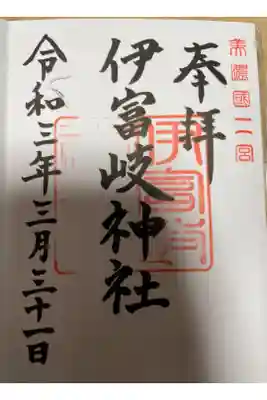 美濃國二宮
奉拝
伊富岐神社
令和三年三月三十一日